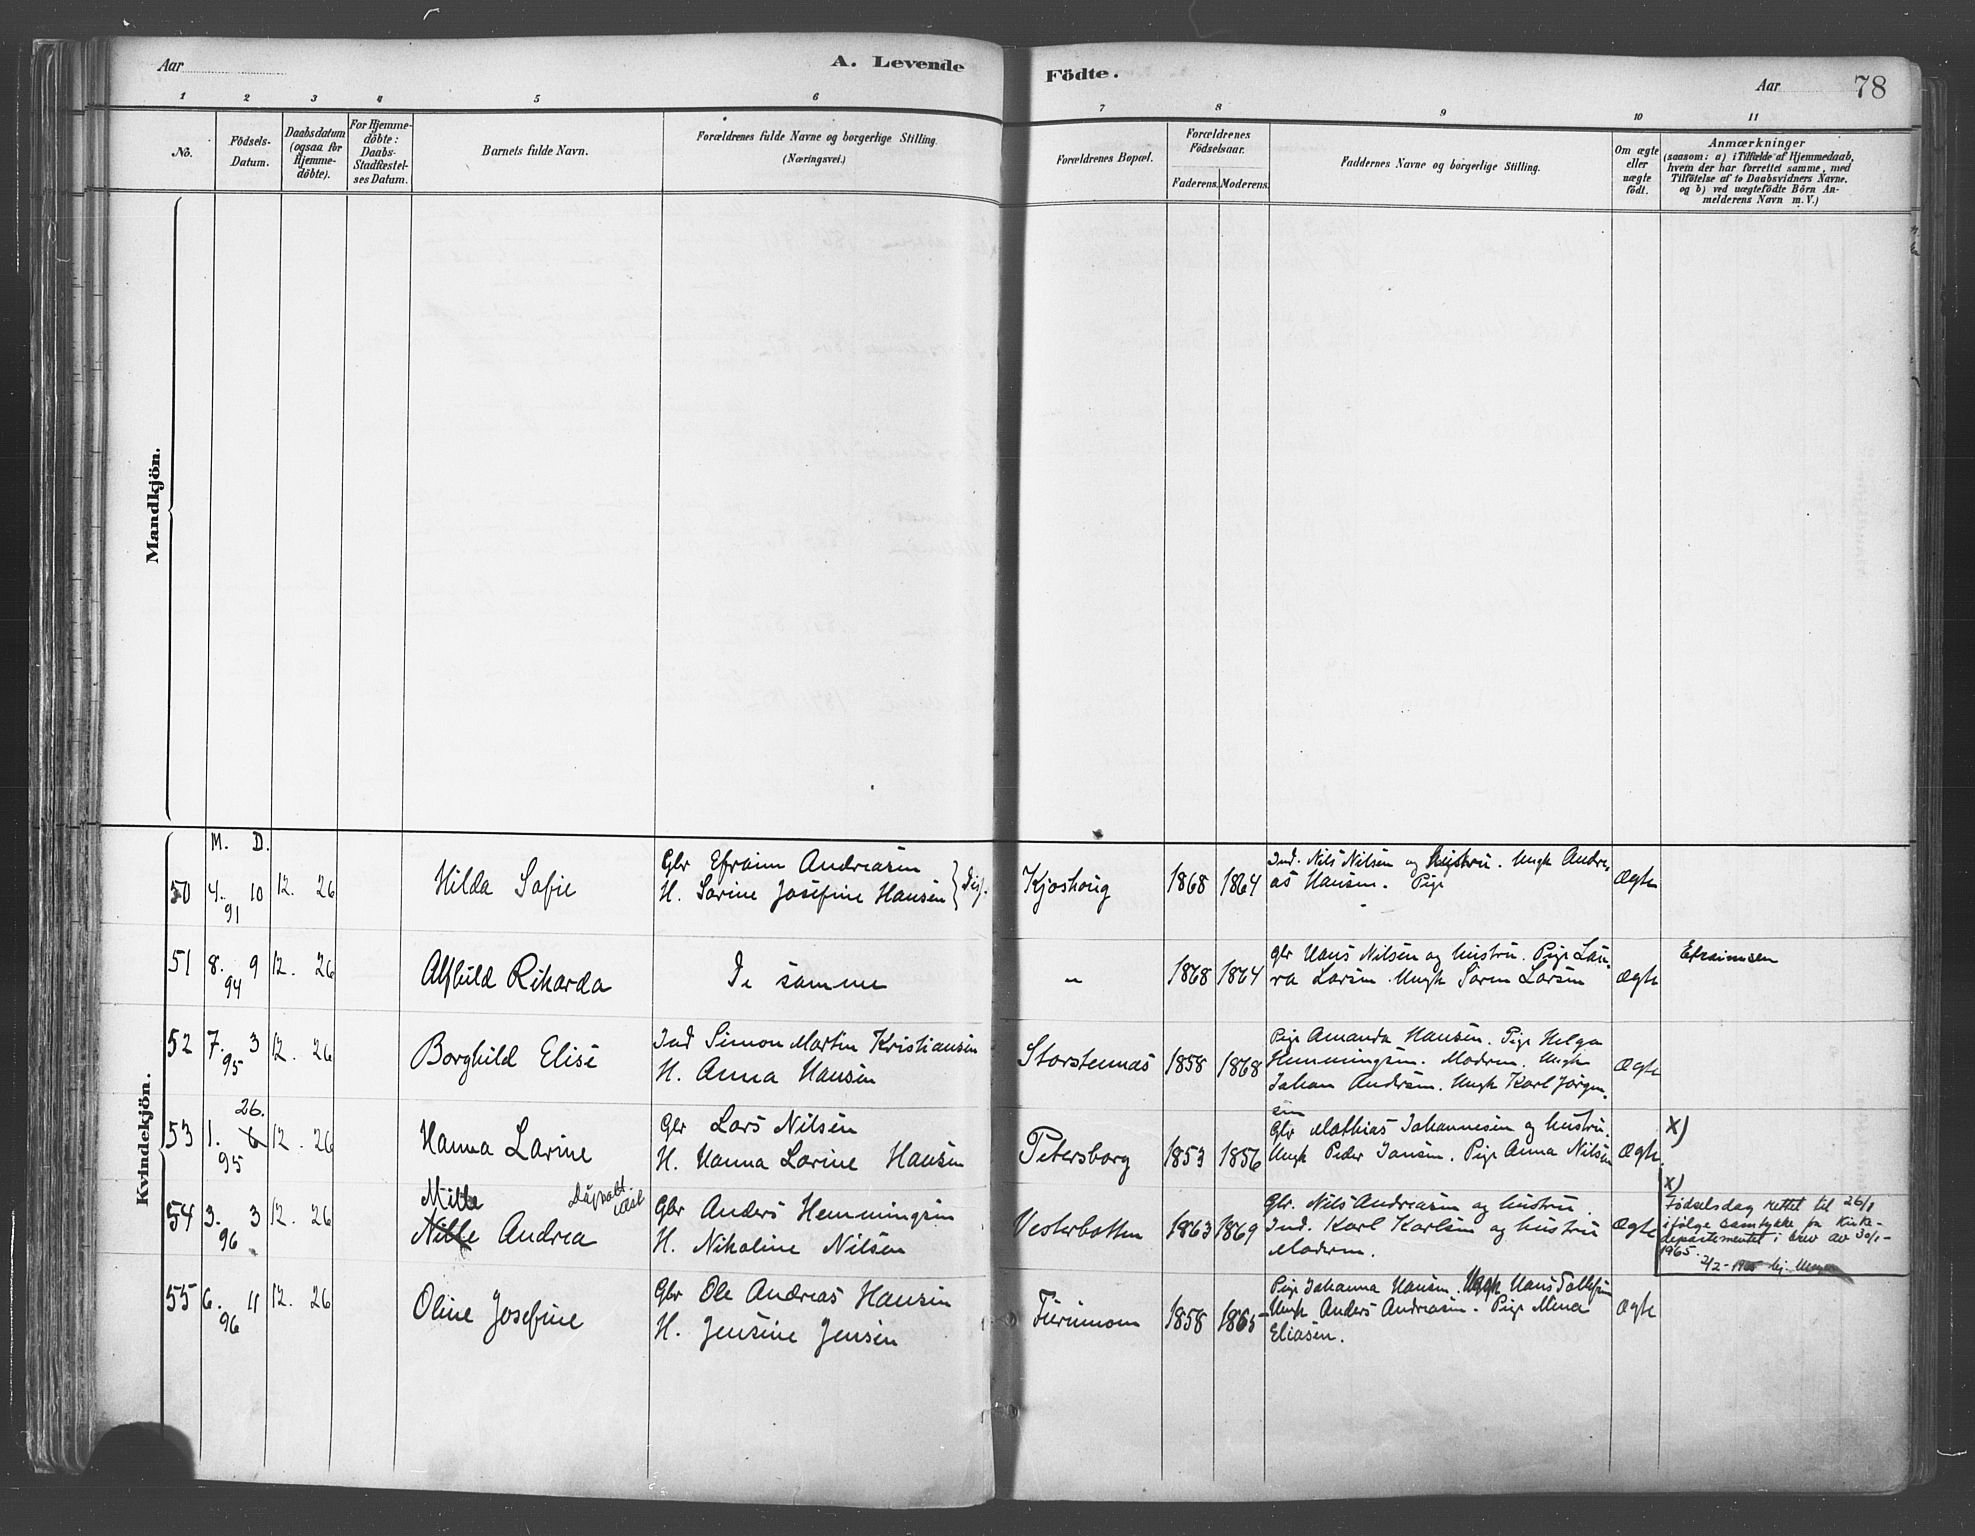 Aar
A. Levende
Födte.
Aar
78
1 2 3 4 5 6 7 8 9 10 11
No.
Födsels-
Datum.
Daabsdatum
(ogsaa for
Hjemme-
döbte).
For Hjemme-
döbte:
Daabs-
Stadfæstel-
ses Datum.
Barnets fulde Navn.
Forældrenes fulde Navne og borgerlige Stilling.
(Næringsvei.)
Forældrenes Bopæl.
Forældrenes
Födselsaar.
Faderens. Moderens.
Faddernes Navne og borgerlige Stilling.
Om ægte
eller
uægte
födt.
Anmærkninger
(saasom: a) i Tilfælde af Hjemmedaab,
hvem der har forrettet samme, med
Tilföielse af to Daabsvidners Navne.
og b) ved uægtefödte Börn An-
melderens Navn m. V.)
Mandkjön.
Kvindekjön.
M. D.
50 4. 10 12. 26
91
Hilda Sofie
Gbr Efraim Andreasen
H. Sorine Josefine Hansen
Kjoshoug 1868 1864
Ind. Nils Nilsen og hustru. Ungk Andre-
as Hansen. Pige
Ægte
51 8. 9 12. 26
94
Alfhild Rikarda
De samme
" 1868 1864
Gbr Hans Nilsen og hustru. Pige Lau-
ra Larsen. Ungk Sören Larsen
Ægte
Efraimsen
52 7. 3 12. 26
95
Borghild Elise
Ind Simon Martin Kristiansen
H. Anna Hansen
Storstennæs 1858 1868
Pige Amanda Hansen. Pige Helga
Hemmingsen. Modren. Ungk
Johan Andrsen. Ungk Karl Jörgen-
sen
Ægte
26.
53 1. 6 12. 26
95
Hanna Larine
Gbr Lars Nilsen
H. Hanna Larine Hansen
Petersborg 1853 1856
Gbr Mathias Johannesen og hustru.
Ungk Peder Jansen. Pige Anna Nilsen
Ægte.
X)
54 3. 3 12. 26
96
Mille
Nille Andrea
Gbr Anders Hemmingsen
H. Nikoline Nilsen
Vesterbotten 1863 1869
Gbr. Nils Andreasen og hustru.
Ind. Karl Karlsen og hustru
Modren.
Ægte
X)
Fødselsdag rettet til 26/1
ifølge samtykke fra Kirke-
departementet i brev av 30/1-
1965.
2/2-1965
55 6. 11 12. 26
96
Oline Josefine
Gbr Ole Andreas Hansen
H. Jensine Jensen
1858 1865
Pige Johanna Hansen. Ungk Hans Tollefsen
Ungk Anders Andreasen. Pige Mina
Eliasen.
Ægte